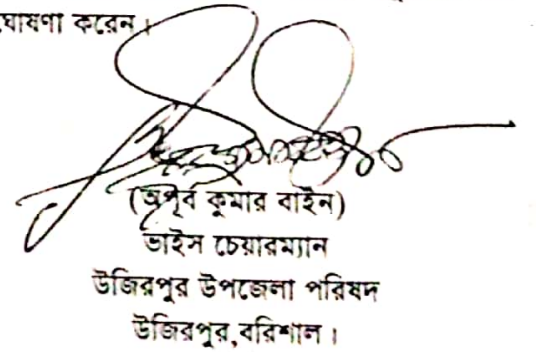 ঘোষণা করেন।
(অপূর্ব কুমার বাইন)
ভাইস চেয়ারম্যান
উজিরপুর উপজেলা পরিষদ
উজিরপুর,বরিশাল।